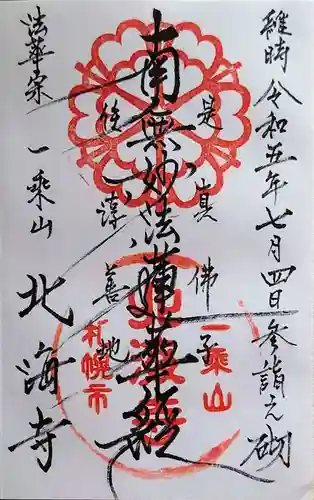 維時令和五年七月四日参詣之砌
是真佛子
南無妙法蓮華経
住淳善地
法華宗一乗山
北海寺
一乗山
札幌市